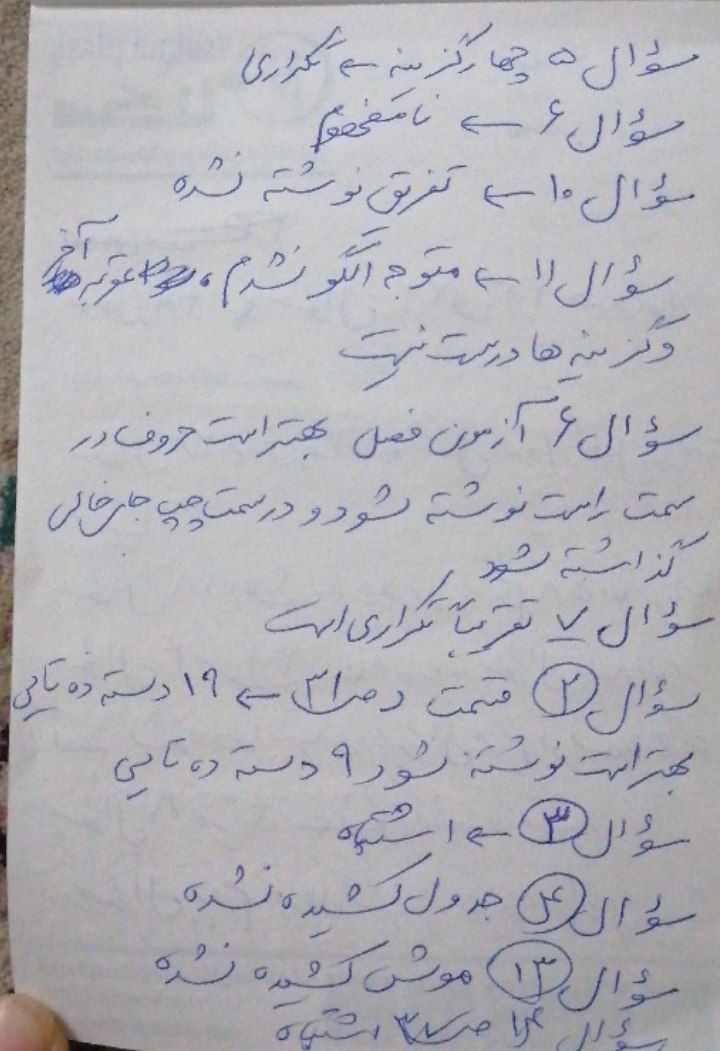 سؤال ۵ چهارگزینه ← تکراری
سؤال ۶ ← نامفهوم
سؤال ۱۰ ← تفرق نوشته نشده
سؤال ۱۱ ← متوجه الگو نشدم، آخر
و گزینه ها درست نیست
سؤال ۶ آزمون فصل بهتر است حروف در
سمت راست نوشته شود و در سمت چپ جای خالی
گذاشته شود
سؤال ۷ تقریباً تکراری است
سؤال ۲ قسمت د ص ۳۱ ← ۱۹ دسته ده تایی
بهتر است نوشته شود ۹ دسته ده تایی
سؤال ۳ ← اشتباه
سؤال ۴ جدول کشیده نشده
سؤال ۱۳ موش کشیده نشده
سؤال ۱۴ ص ۳۷ اشتباه